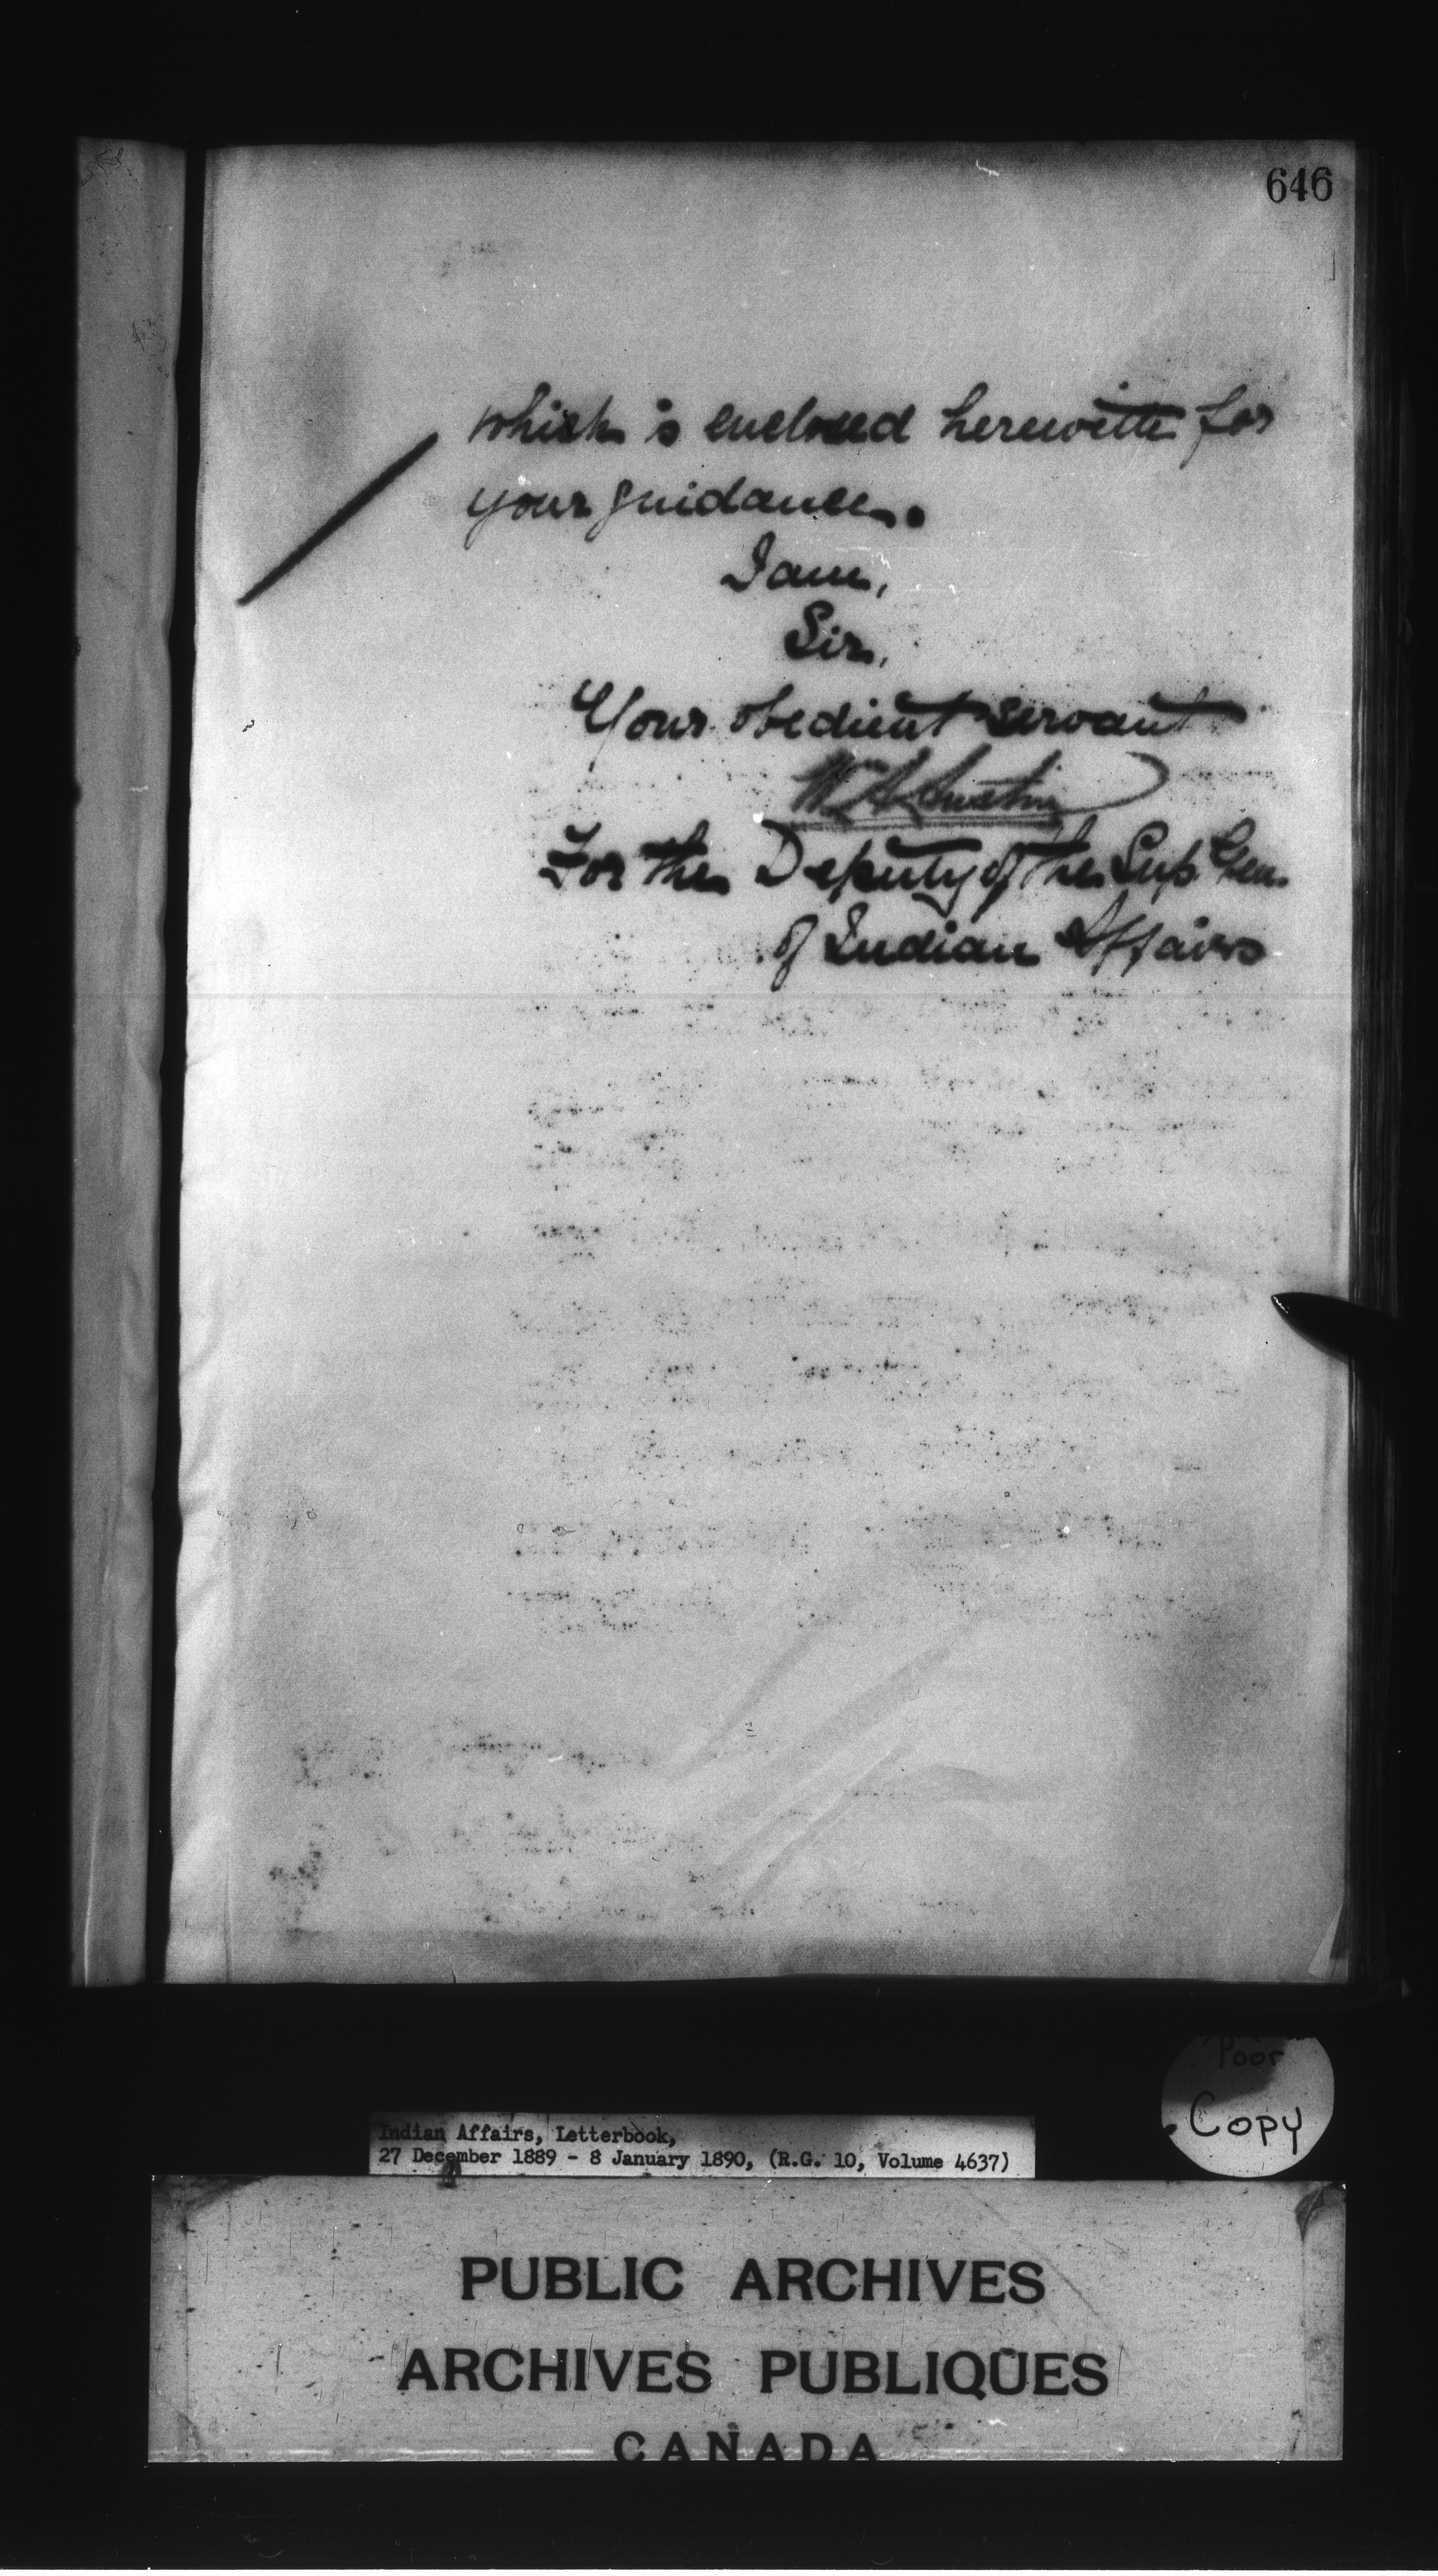 646
which is enclosed herewith for
your guidance.
I am,
Sir,
Your obedient servant
W A Austin
For the Deputy of the Sup Gen.
of Indian Affairs
Poor
Copy
Indian Affairs, Letterbook,
27 December 1889 - 8 January 1890, (R.G. 10, Volume 4637)
PUBLIC ARCHIVES
ARCHIVES PUBLIQUES
CANADA